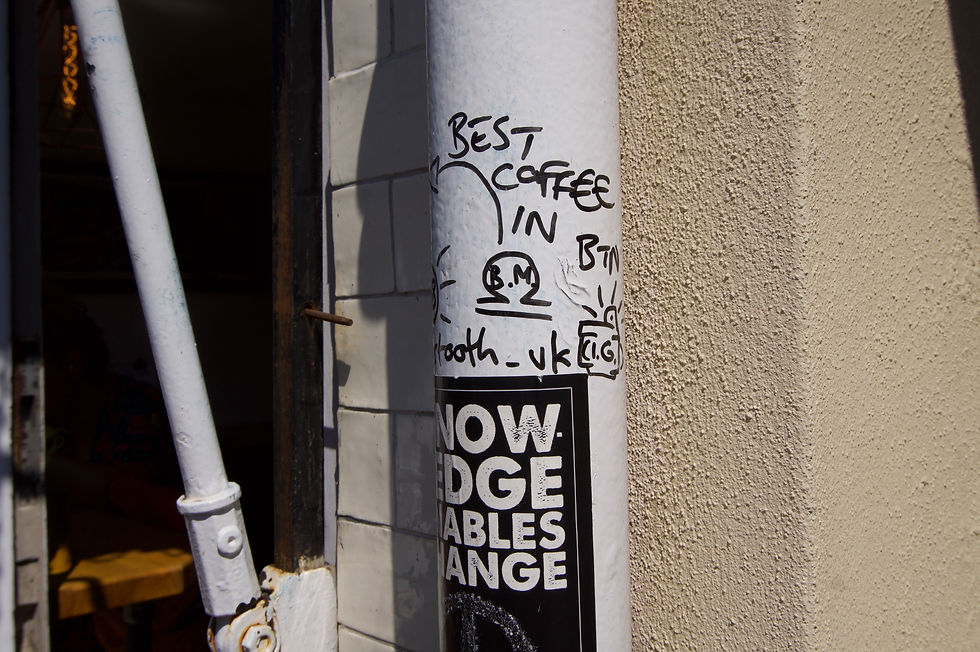 BEST
COFFEE
IN
BTN
B.M
tooth_uk
I.G.
NOW-
EDGE
ABLES
ANGE